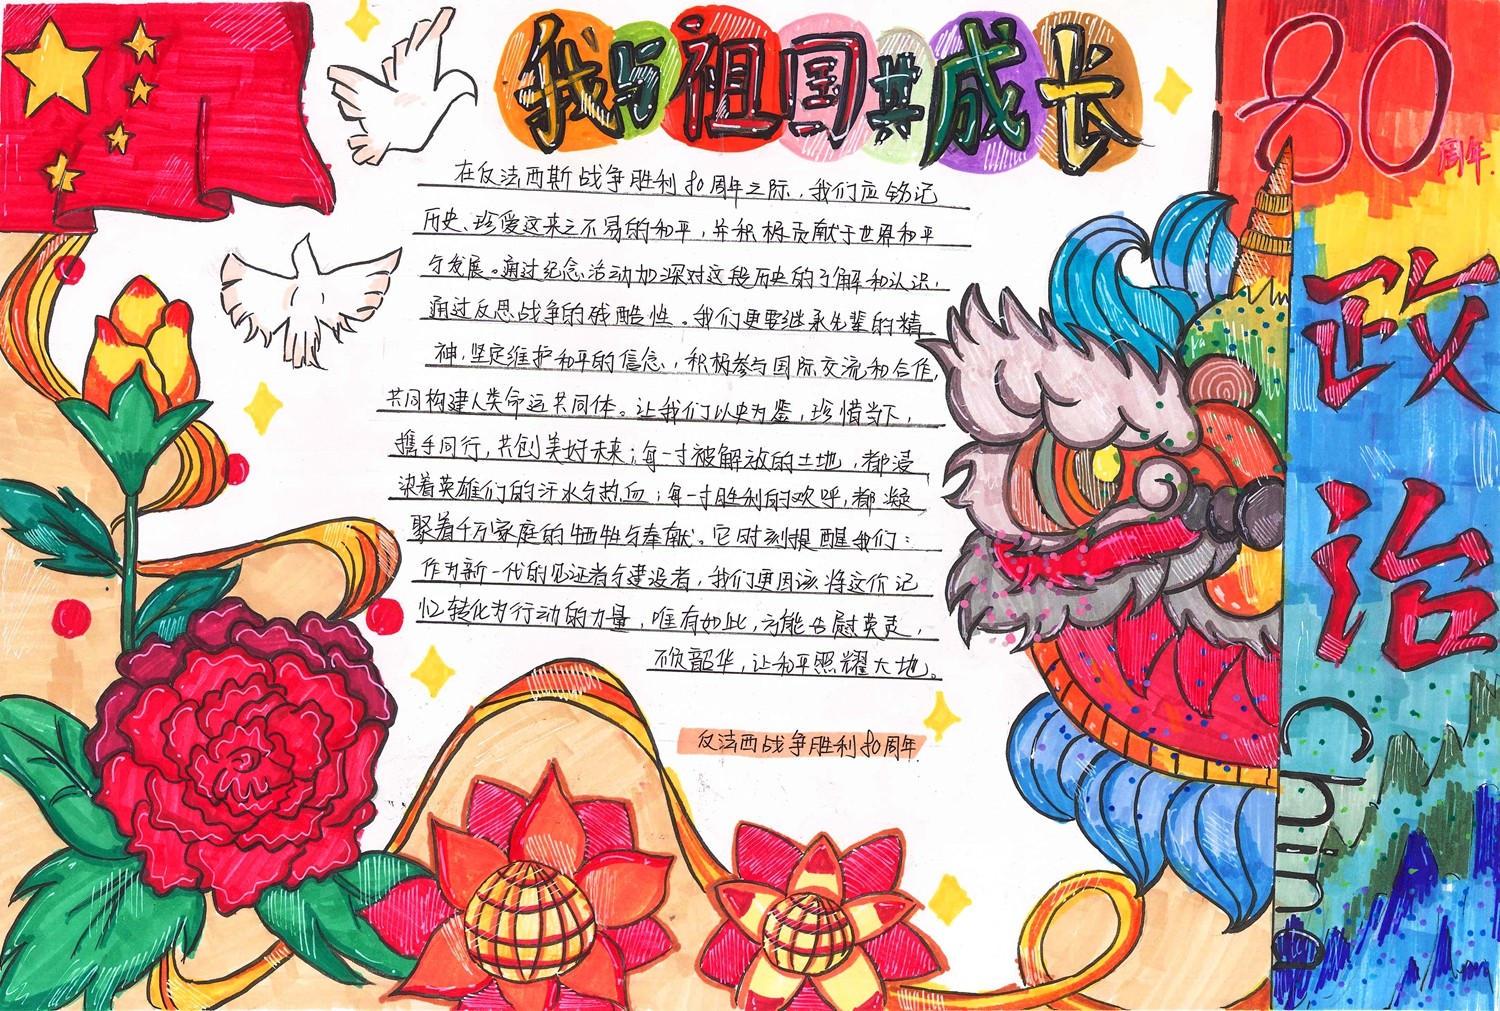 我与祖国共成长
在反法西斯战争胜利80周年之际，我们应铭记
历史、珍爱这来之不易的和平，并积极贡献于世界和平
与发展。通过纪念活动加深对这段历史的了解和认识，
通过反思战争的残酷性。我们更要继承先辈的精
神，坚定维护和平的信念，积极参与国际交流和合作，
共同构建人类命运共同体。让我们以史为鉴，珍惜当下，
携手同行，共创美好未来；每一寸被解放的土地，都浸
染着英雄们的汗水与热血；每一寸胜利的欢呼，都凝
聚着千万家庭的牺牲与奉献。它时刻提醒我们：
作为新一代的见证者与建设者，我们更因该将这份记
忆转化为行动的力量，唯有如此，方能告慰英灵，
不负韶华，让和平照耀大地。
反法西战争胜利80周年
80周年
政治
China